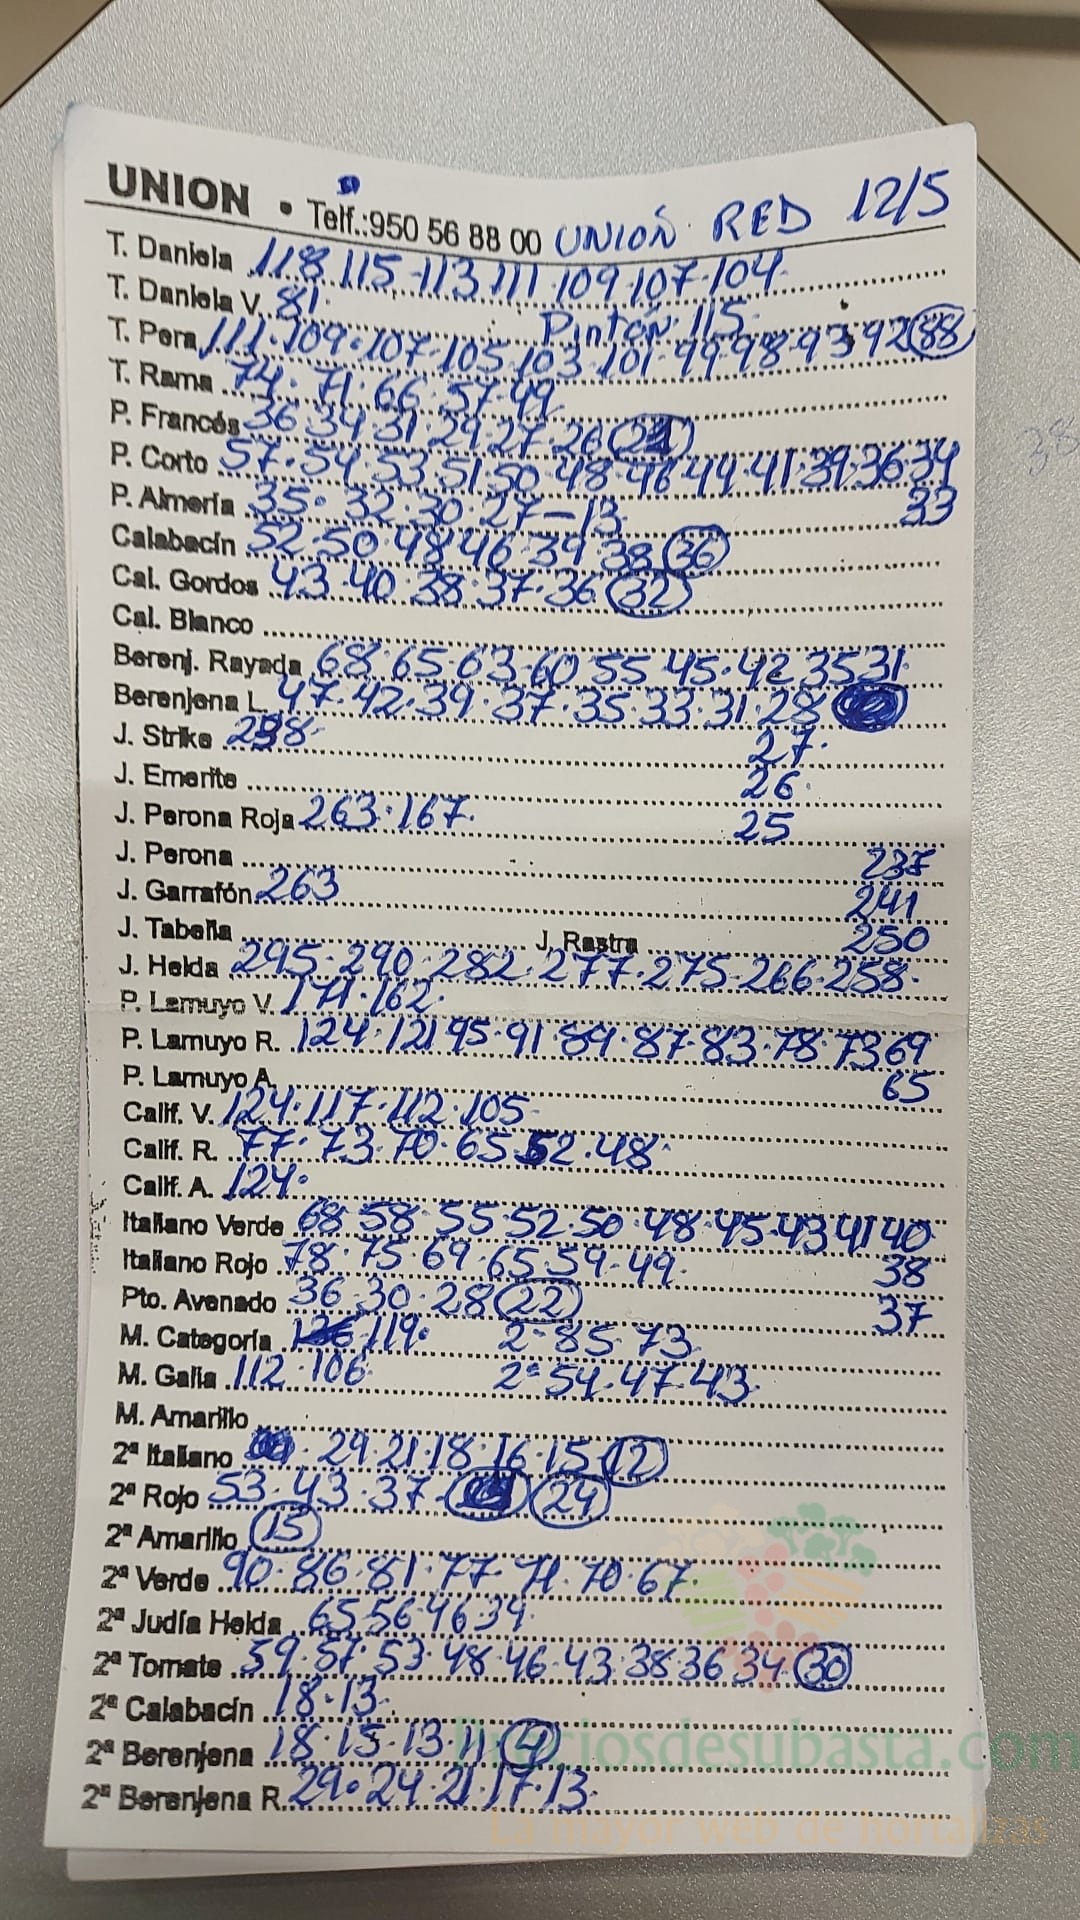 UNION • Telf.:950 56 88 00 UNIÓN RED 12/5
T. Daniela 118 115 113 111 109 107 104
T. Daniela V. 81 Pintón 115
T. Pera 111 109 107 105 103 101 99 98 93 92 88
T. Rama 74 71 66 57 49
P. Francés 36 34 31 29 27 26
P. Corto 57 54 53 51 50 48 46 44 41 39 36 34
33
P. Almería 35 32 30 27-13
Calabacín 52 50 48 46 39 38 36
Cal. Gordos 43 40 38 37 36 32
Cal. Blanco
Berenj. Rayada 68 65 63 60 55 45 42 35 31
Berenjena L. 47 42 39 37 35 33 31 28
27
26
25
J. Strike
J. Emerite
J. Perona Roja 263 167
J. Perona
J. Garrafón 263
241
250
J. Tabella J. Rastra
J. Helda 295 290 282 277 275 266 258
P. Lamuyo V. 171 162
P. Lamuyo R. 124 121 95 91 89 87 83 78 73 69
65
P. Lamuyo A.
Calif. V. 124 117 112 105
Calif. R. 77 73 70 65 52 48
Calif. A. 124
Italiano Verde 68 58 55 52 50 48 45 43 41 40
38
37
Italiano Rojo 78 75 69 65 59 49
Pto. Avenado 36 30 28 22
M. Categoría 119 2ª 85 73
M. Galia 112 106 2ª 54 47 43
M. Amarillo
2ª Italiano 29 21 18 16 15 12
2ª Rojo 53 43 37 24
2ª Amarillo 15
2ª Verde 90 86 81 77 71 70 67
2ª Judía Helda 65 56 46 34
2ª Tomate 59 57 53 48 46 43 38 36 34 30
2ª Calabacín 18 13
2ª Berenjena 18 15 13 11
2ª Berenjena R. 29 24 21 17 13
Preciosdesubasta.com
La mayor web de hortalizas